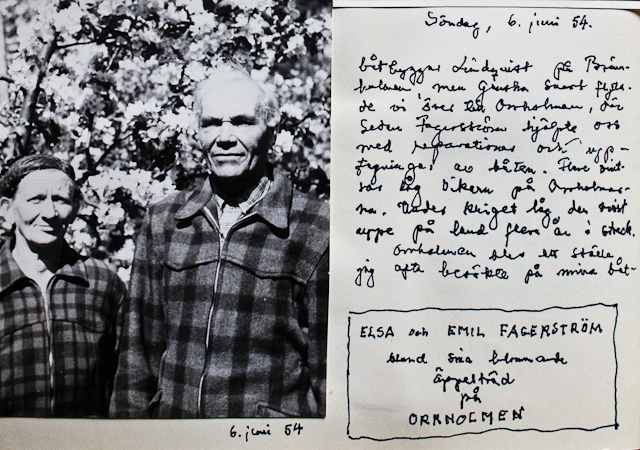 Söndag, 6. juni 54.
båtbyggar Lindqvist på Bränn-
holmen, men ganska snart flytta-
de vi över till Orrholmen, där
sedan Fagerström hjälpte oss
med reparationer och upp-
fräschningar av båten. Flera vint-
rar låg Vikern på Orrholmar-
na. Under kriget låg den visst
uppe på land flera år i sträck.
Orrholmen blev ett ställe
jag ofta besökte på mina båt-
ELSA och EMIL FAGERSTRÖM
bland sina blommande
äppelträd
på
ORRHOLMEN
6. juni 54